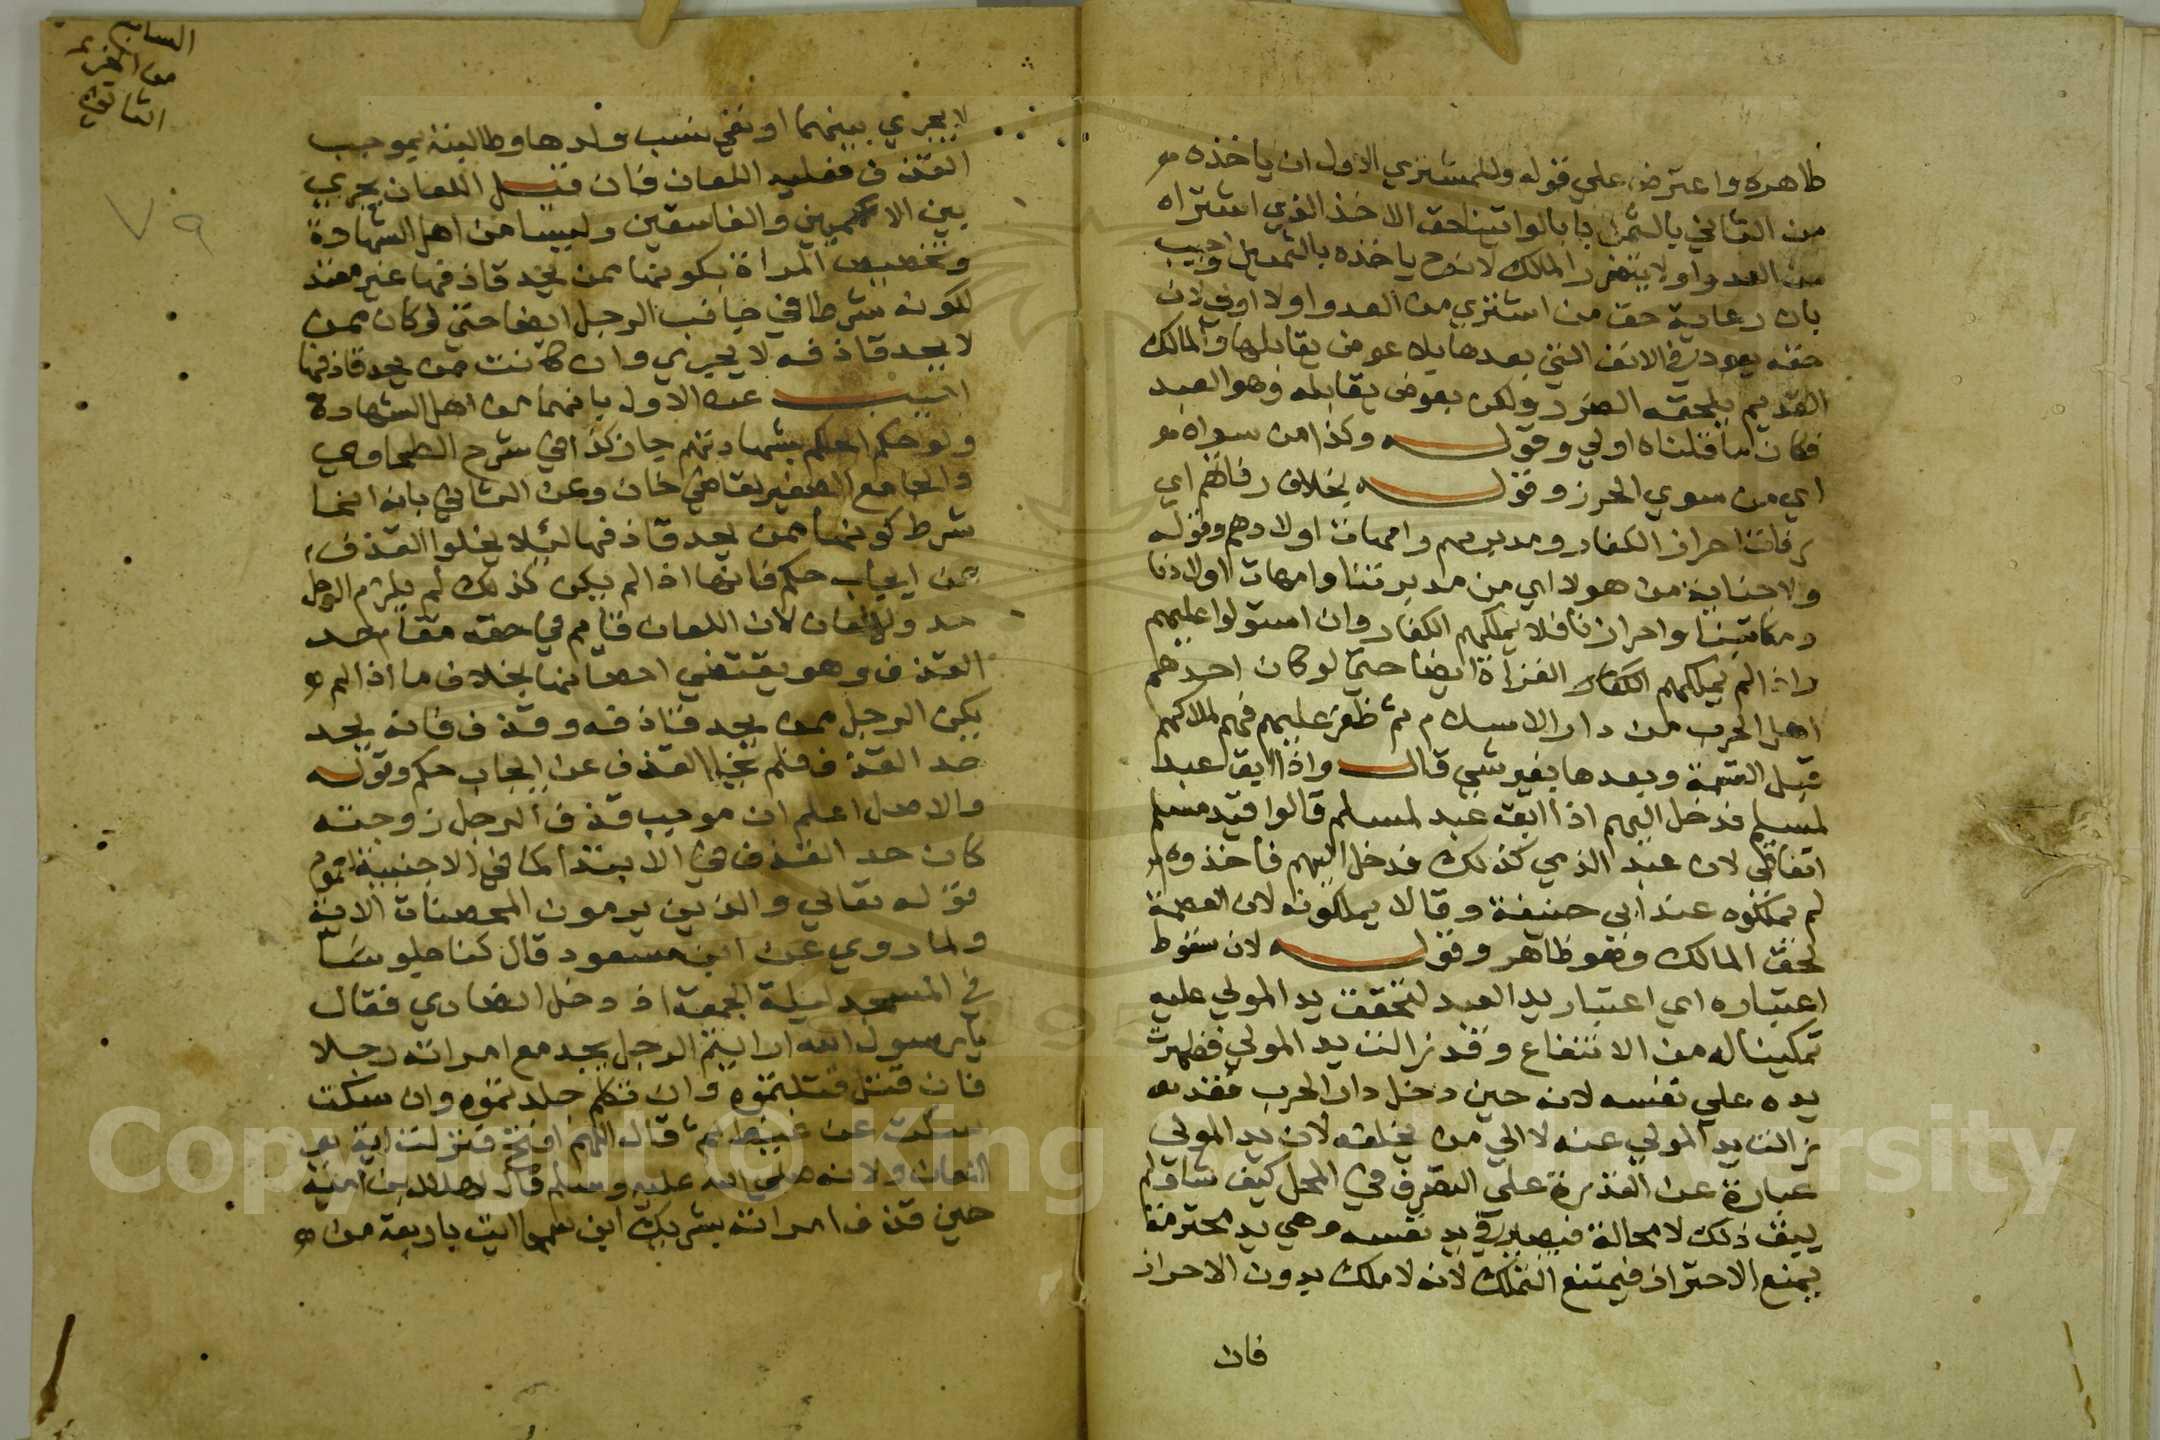 ظاهره واعترض علي قوله وللمشتري الاول ان ياخذه
من الثاني بالثمن بابا لواتينا حق الاخذ الذي اشتراه
من العدو اولا يتضرر المالك لانه ح ياخذه بالثمنين واجيب
بان رعاية حق من اشتري من العدو اولا اولي لان
حقه يعود في الالف التي بعدها بلا عوض يقابلها والمالك
القديم يلحقه الضرر ولكن بعوض يقابله وهو العبد
فكان ما قلناه اولي وقوله وكذا من سواه
اي من سوي الحر وقوله بخلاف رقابهم اي
رقاب احرار الكفار ومدبريهم وامهات اولادهم وقوله
ولا جناية من هولا اي من مدبرتنا وامهات اولادنا
ومكاتبنا واحرارنا فلا يملكهم الكفار وان استولوا عليهم
واذا لم يملكهم الكفار الغزاة ايضا حتي لو كان احدهم
اهل الحرب من دار الاسلام ثم ظفر عليهم فهم لملاكهم
قبل القسمة وبعدها بغير شي قال واذا ابق عبد
لمسلم فدخل اليهم اذا ابق عبد لمسلم قالوا قيد مسلم
اتفاقي لان عبد الذمي كذلك فدخل اليهم فاخذوه
لم يملكوه عند ابي حنيفة وقالا يملكونه لان العصمة
لحق المالك وهو ظاهر وقوله لان سقوط
اعتباره اي اعتبار يد العبد لتحقق يد المولي عليه
تمكينا له من الانتفاع وقد زالت يد المولي فظهرت
يده علي نفسه لانه حين دخل دار الحرب فقد
زالت يد المولي عنه لا الي من يخلفه لان يد المولي
عبارة عن القدرة علي التصرف في المحل كيف شا ولم
يبق ذلك لا محالة فيصير في يد نفسه وهي يد محترمة
يمنع الاحتراز فيمتنع التملك لانه لا ملك بدون الاحراز
فان
السابع
من الجزء
الثاني
٧٩
لا يجري بينهما او نفي نسب ولدها وطالبته بموجب
القذف فعليه اللعان فان قيل اللعان يجري
بين الاعميين والفاسقين وليسا من اهل الشهادة
وتخصيص المراة بكونها ممن يحد قاذفها غير مفيد
لكونه شرطا في جانب الرجل ايضا حتي لو كان ممن
لا يحد قاذفه لا يجري وان كانت ممن يحد قاذفها
اجيب عن الاول بانهما من اهل الشهادة
ولو حكم الحاكم بشهادتهم جاز كذا في شرح الطحاوي
والجامع الصغير لقاضي خان وعن الثاني بانه انما
شرط كونها ممن يحد قاذفها ليلا يخلوا القذف
عن ايجاب حكم فانها اذا لم يكن كذلك لم يلزم الرجل
حد ولا لعان لان اللعان قايم في حقه مقام حد
القذف وهو يقتضي احصانها بخلاف ما اذا لم
يكن الرجل ممن يحد قاذفه وقذف فانه يحد
حد القذف فلم يخل القذف عن ايجاب حكم وقوله
والاصل اعلم ان موجب قذف الرجل زوجته
كان حد القذف في الابتدا كما في الاجنبية لعموم
قوله تعالي والذين يرمون المحصنات الاية
ولما روي عن ابن مسعود قال كنا جلوسا
في المسجد ليلة الجمعة اذ دخل انصاري فقال
يا رسول الله ارايتم الرجل يجد مع امراته رجلا
فان قتل قتلتموه وان تكلم جلدتموه وان سكت
سكت عن غيظ ثم قال اللهم افتح فنزلت اية
اللعان ولانه صلي الله عليه وسلم قال لهلال بن امية
حين قذف امراته بشريك ابن سحما ايت باربعة من